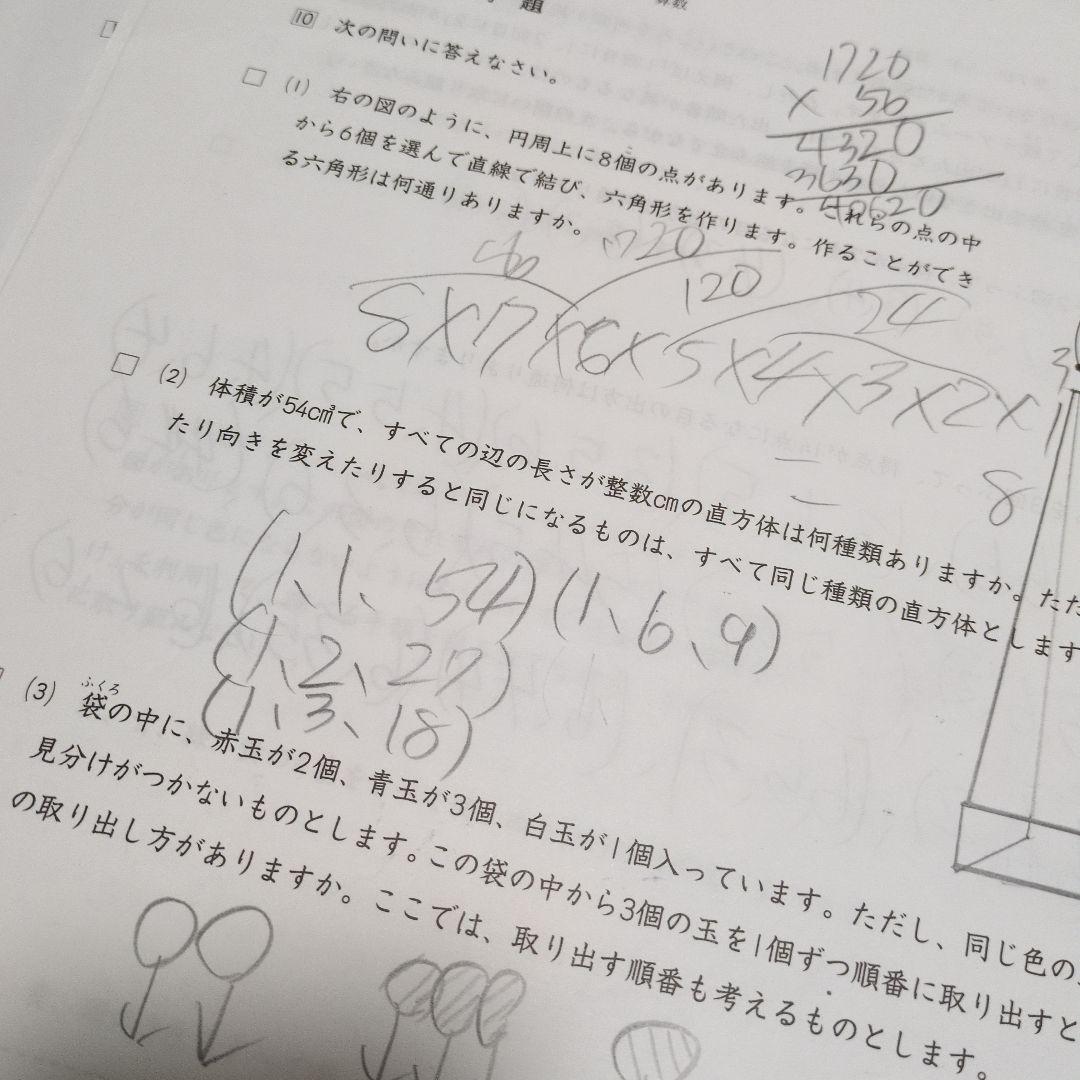 題
算数
10 次の問いに答えなさい。
(1) 右の図のように、円周上に8個の点があります。これらの点の中
から6個を選んで直線で結び、六角形を作ります。作ることができ
る六角形は何通りありますか。
1720
× 56
4320
3630
40620
56
1720
120
24
8×7×6×5×4×3×2×1
8
(2) 体積が54cm³で、すべての辺の長さが整数cmの直方体は何種類ありますか。ただ
たり向きを変えたりすると同じになるものは、すべて同じ種類の直方体とします
(1、1、54)(1、6、9)
(1、2、27)
(1、3、18)
(3) 袋の中に、赤玉が2個、青玉が3個、白玉が1個入っています。ただし、同じ色の
ふくろ
見分けがつかないものとします。この袋の中から3個の玉を1個ずつ順番に取り出すと
の取り出し方がありますか。ここでは、取り出す順番も考えるものとします。